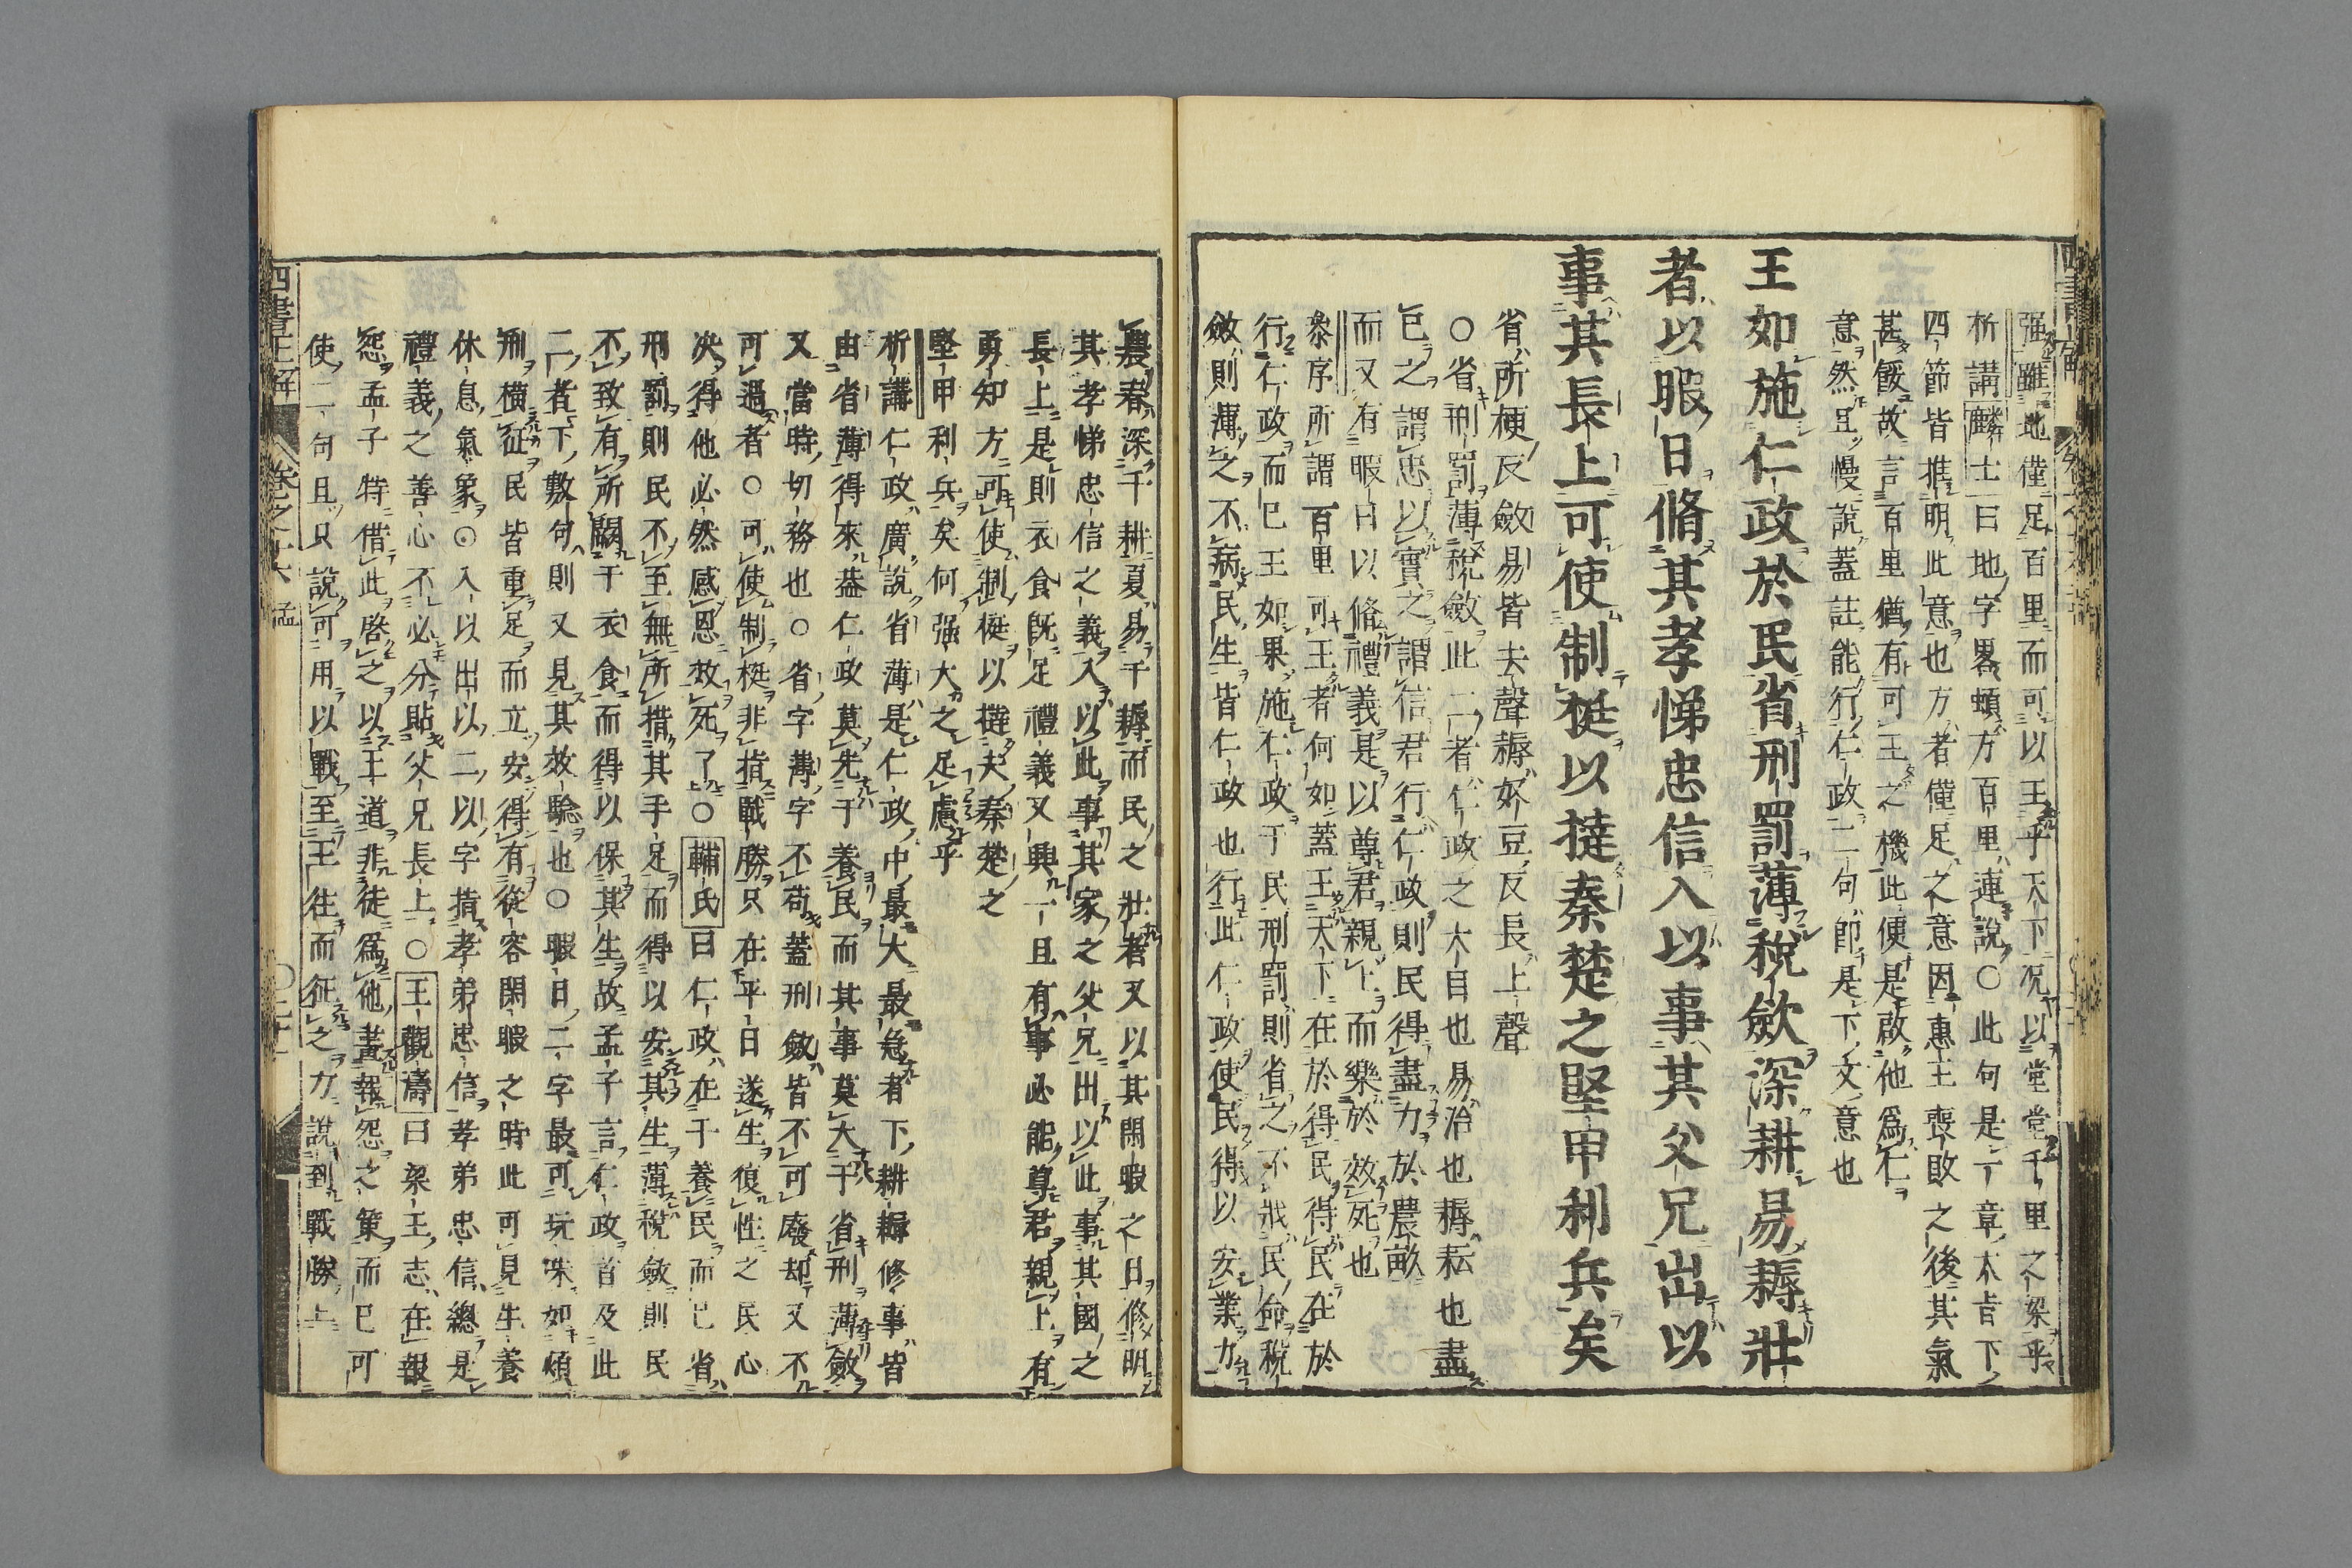 强雖地僅足百里而可以王乎天下况以堂堂千里之梁乎
析講麟士曰地字畧頓方百里連說○此句是一章太旨下
四節皆推明此意也方者僅足之意因惠王喪敗之後其氣
甚餒故言百里猶有可王之機此便是啟他爲仁
意然且慢說蓋註能行仁政二句節是下文意也
王如施仁政於民省刑罰薄稅歛深耕易耨壯
者以暇日脩其孝悌忠信入以事其父兄出以
事其長上可使制梃以撻秦楚之堅甲利兵矣
省所梗反斂易皆去聲耨奴豆反長上聲
○省刑罰薄稅斂此二者仁政之大自也易治也耨耘也盡
已之謂忠以實之謂信君行仁政則民得盡力於農畝
而又有暇日以脩禮義是以尊君親上而樂於效死也
叅序所謂百里可王者何如蓋王天下在於得民得民在於
行仁政而已王如果施仁政于民刑罰則省之不戕民命稅
斂則薄之不病民生皆仁政也行此仁政使民得以安業力
農春深于耕夏易于耨而民之壯者又以其閑暇之日修明
其孝悌忠信之義入以此事其家之父兄出以此事其國之
長上是則衣食旣足禮義又興一且有事必能尊君親上有
勇知方可使制梃以撻夫秦楚之
堅甲利兵矣何强大之足慮乎
析講仁政廣說省薄是仁政中最大最急者下耕耨修事皆
由省薄得來葢仁政莫先于養民而其事莫大于省刑薄斂
又當時切務也○省字薄字不苟蓋刑斂皆不可廢却又不
可過者○可使制梃非指戰勝只在平日遂生復性之民心
决得他必然感恩效死了○輔氏曰仁政在于養民而已省
刑罰則民不至無所措其手足而得以安其生薄稅斂則民
不致有所闕于衣食而得以保其生故孟子言仁政首及此
二者下數句則又見其效驗也○暇日二字最可玩味如煩
刑橫征民皆重足而立安得有從容閑暇之時此可見生養
休息氣象○入以出以二以字指孝弟忠信孝弟忠信總是
禮義之善心不必分貼父兄長上○王觀濤曰梁王志在報
怨孟子特借此啓之以王道非徒爲他畫報怨之策而已可
使二句且只說可用以戰至王往而征之方說到戰勝上
四書正解
卷之十六 孟